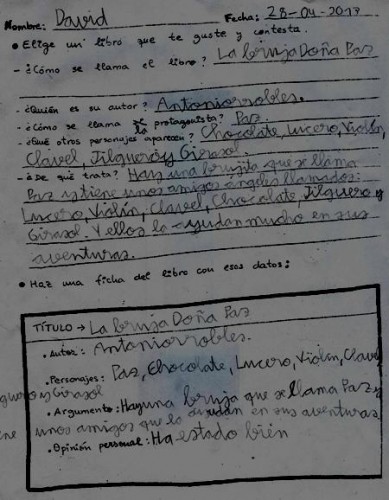 Nombre: David Fecha: 28-04-2017
• Elige un libro que te guste y contesta.
- ¿Cómo se llama el libro? La bruja Doña Paz
- ¿Quién es su autor? Antoniorrobles.
- ¿Cómo se llama la protagonista? Paz.
- ¿Qué otros personajes aparecen? Chocolate, Lucero, Violín,
Clavel, Jilguero y Girasol.
- ¿De qué trata? Hay una brujita que se llama
Paz y tiene unos amigos angeles llamados:
Lucero, Violín, Clavel, Chocolate, Jilguero y
Girasol. Y ellos la ayudan mucho en sus
aventuras.
• Haz una ficha del libro con esos datos:
TÍTULO → La bruja Doña Paz
• Autor: Antoniorrobles.
• Personajes: Paz, Chocolate, Lucero, Violín, Clavel
guero y Girasol
• Argumento: Hay una bruja que se llama Paz y
ene unos amigos que la ayudan en sus aventuras
• Opinión personal: Ha estado bién